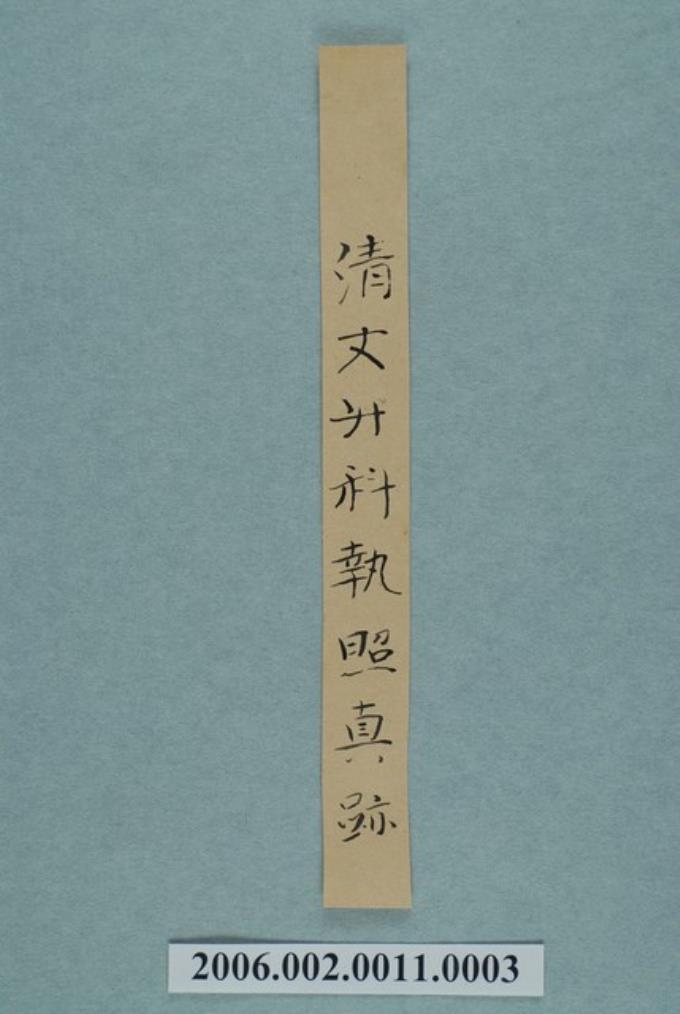 清丈升科執照真跡
2006.002.0011.0003